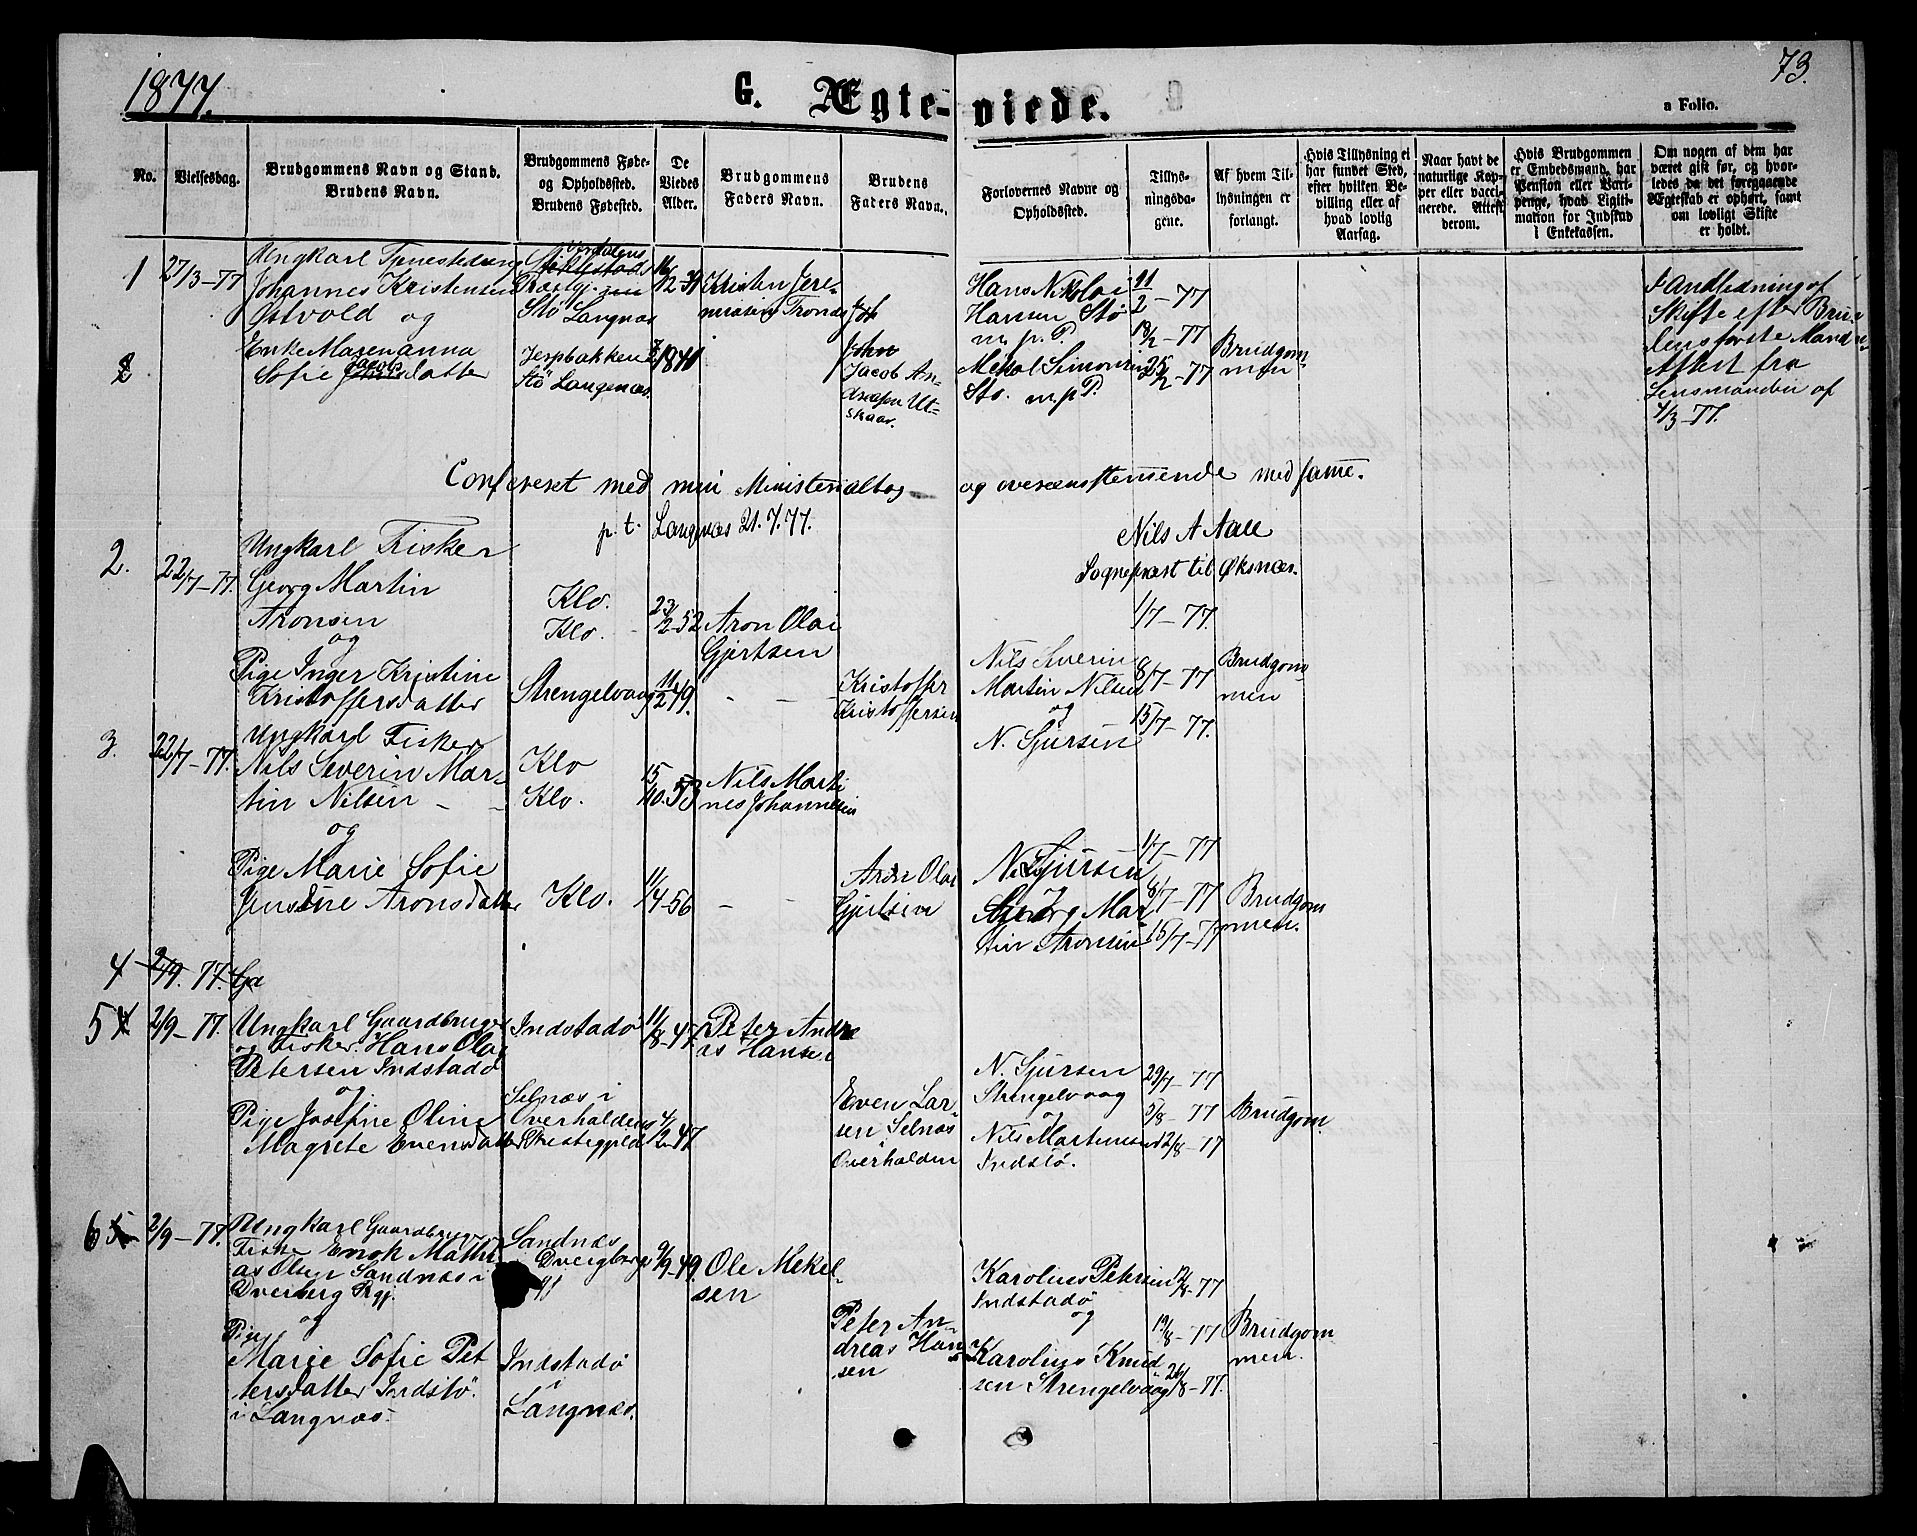 1877.
G. Ægte-viede.
73.
a Folio.
No.
Vielsesdag.
Brudgommens Navn og Stand.
Brudens Navn.
Brudgommens Føde-
og Opholdssted.
Brudens Fødested.
De
Viedes
Alder.
Brudgommens
Faders Navn.
Brudens
Faders Navn.
Forlovernes Navne og
Opholdssted.
Tillys-
ningsda-
gene.
Af hvem Til-
lysningen er
forlangt.
Hvis Tillysning ei
har fundet Sted,
efter hvilken Be-
villing eller af
hvad lovlig
Aarsag.
Naar havt de
naturlige Kop-
per eller vacci-
nerede. Attest
derom.
Hvis Brudgommen
er Embedsmand, har
Pension eller Vart-
penge, hvad Ligiti-
mation for Indskud
i Enkekassen.
Om nogen af dem har
været gift før, og hvor-
ledes da det foregaaende
Ægteskab er ophørt, samt
om lovligt Skifte
er holdt.
1
27/3-77
Ungkarl Tjenestedreng
Johannes Kristensen
Østvold og
Enke Maren anna
Sofie Jacobsdatter
Værdalens
Præstgj.
Stø Langnæs
Jerpbakken
Stø Langenæs.
Kristen Jere-
miasen Trones
John
Jacob An-
dreasen Ut-
skaar.
Hans Nikolai
Hansen Stø
m. p. P.
Mekal Simonsen
Stø. m. p. P.
11/2-77
18/2-77
25/2-77
Brudgom-
men
I Andledning af
Skifte efter Bru-
dens første Mand
Attest fra
Lensmanden af
4/3-77.
2
Conferert med min Ministerialbog og overensstemmende med samme.
p. t. Langnæs 21.7.77.
Nils A Aall
Sognepræst til Øksnæs.
2.
22/7-77.
Ungkarl Fisker
Georg Martin
Aronsen
og
Pige Inger Kristine
Kristoffersdatter
Klo.
Klo.
Strengelvaag
23/2-52
11/2 49.
Aron Olai
Gjertsen
Kristoffer
Kristoffersen
Nils Severin
Martin Nilsen
og
N. Sjursen
1/7-77.
8/7-77
15/7-77.
Brudgom
men
3.
22/7-77.
Ungkarl Fisker
Nils Severin Mar-
tin Nilsen
og
Pige Marie Sofie
Jensine Aronsdatter
Klo
Klo.
Klo.
15/10.53
11/4-56
Nils Marti
nes Johannesen
Aron Olai
Gjertsen
N. Sjursen
Georg Mar
tin Aronsen
1/7-77
8/7-77
15/7-77
Brudgom
men.
4
2/9.77.
5
2/9-77.
Ungkarl Gaardbruger
og Fisker. Hans Olai
Petersen Indstadø
og
Pige Josefine Oline
Magrete Evensdatter
Indstadø
Selnæs i
Overhaldens
Præstegjeld
11/8-47.
4/2-47
Peter Andre
as Hansen
Even Lar-
sen Selnæs
Overhalden
N. Sjursen
Strengelvaag
og
Nils Martinusen
Indstø.
29/7-77
5/8-77
12/8-77
Brudgom.
6
2/9-77.
Ungkarl Gaardbruger
Fisker Enok Mathi
as Olsen Sandnæs i
Dverberg Prgj.
og
Pige
Marie Sofie Pet
tersdatter Indstø.
i Langnæs.
Sandnæs
Dverberg
Indstadø
Langnæs.
9/9-49.
Ole Mekel-
sen
Peter An-
dreas Han-
sen
Karolius Petersen
Indstadø
og
Karolius Knud
sen Strengelvaag
12/8-77
19/8-77
26/8-77.
Brudgom
men.